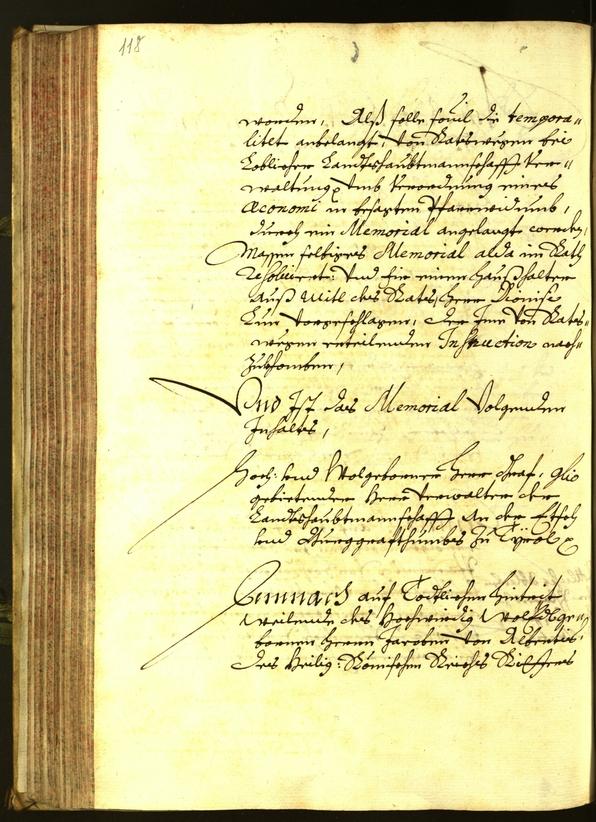 118
worden, Alß solle souil die tempora=
litet anbelangt, von Ratswegen bei
Loblicher Landtshaubtmannschafft Ver=
waltung vmb Verordnung eines
Œconomi in besagten Pfarrwidumb,
durch ein Memorial angelangt werden,
Massen selbiges Memorial alda im Rath
Resoluiert: vnd für einen haußhalter
auß mitl des Rats, Herr Dionisi
vorgeschlagen, der Ime von Rats=
wegen erteilenden Instruction nach=
zukhomben,
Vnd Ist das Memorial Volgenden
Inhalts,
Hoch: vnd Wolgeborner Herr Graf, g
gebietender Herr Verwalter der
Landtshaubtmannschafft an der Etsch
vnd Burggrafthumbs zu Tyrol
Demnach auf Tödtlichen hintritt
Weilende des Hochwirdig WolEdlge=
bornen Herrn Jacoben von Albertis,
des Heilig: Römischen Reichs Rittters